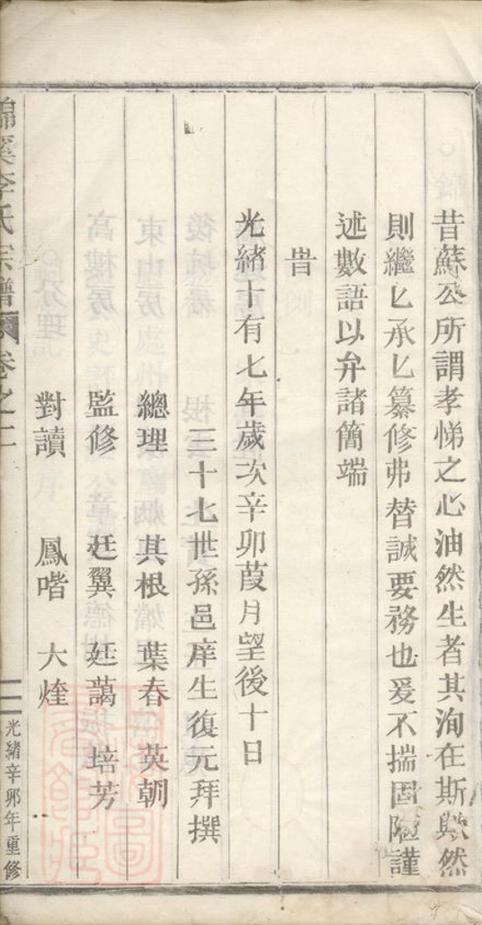 昔蘇公所謂孝悌之心油然生者其洵在斯歟然
則繼匕承匕纂修弗替誠要務也爰不揣固陋謹
述數語以弁諸簡端
旹
光緒十有七年歲次辛卯葭月望後十日
三十七世孫邑庠生復元拜撰
總理 其根 葉春 英朝
監修 廷翼 廷藹 培芳
對讀 鳳喈 大煃
錦溪李氏宗譜 卷之二
光緒辛卯年重修